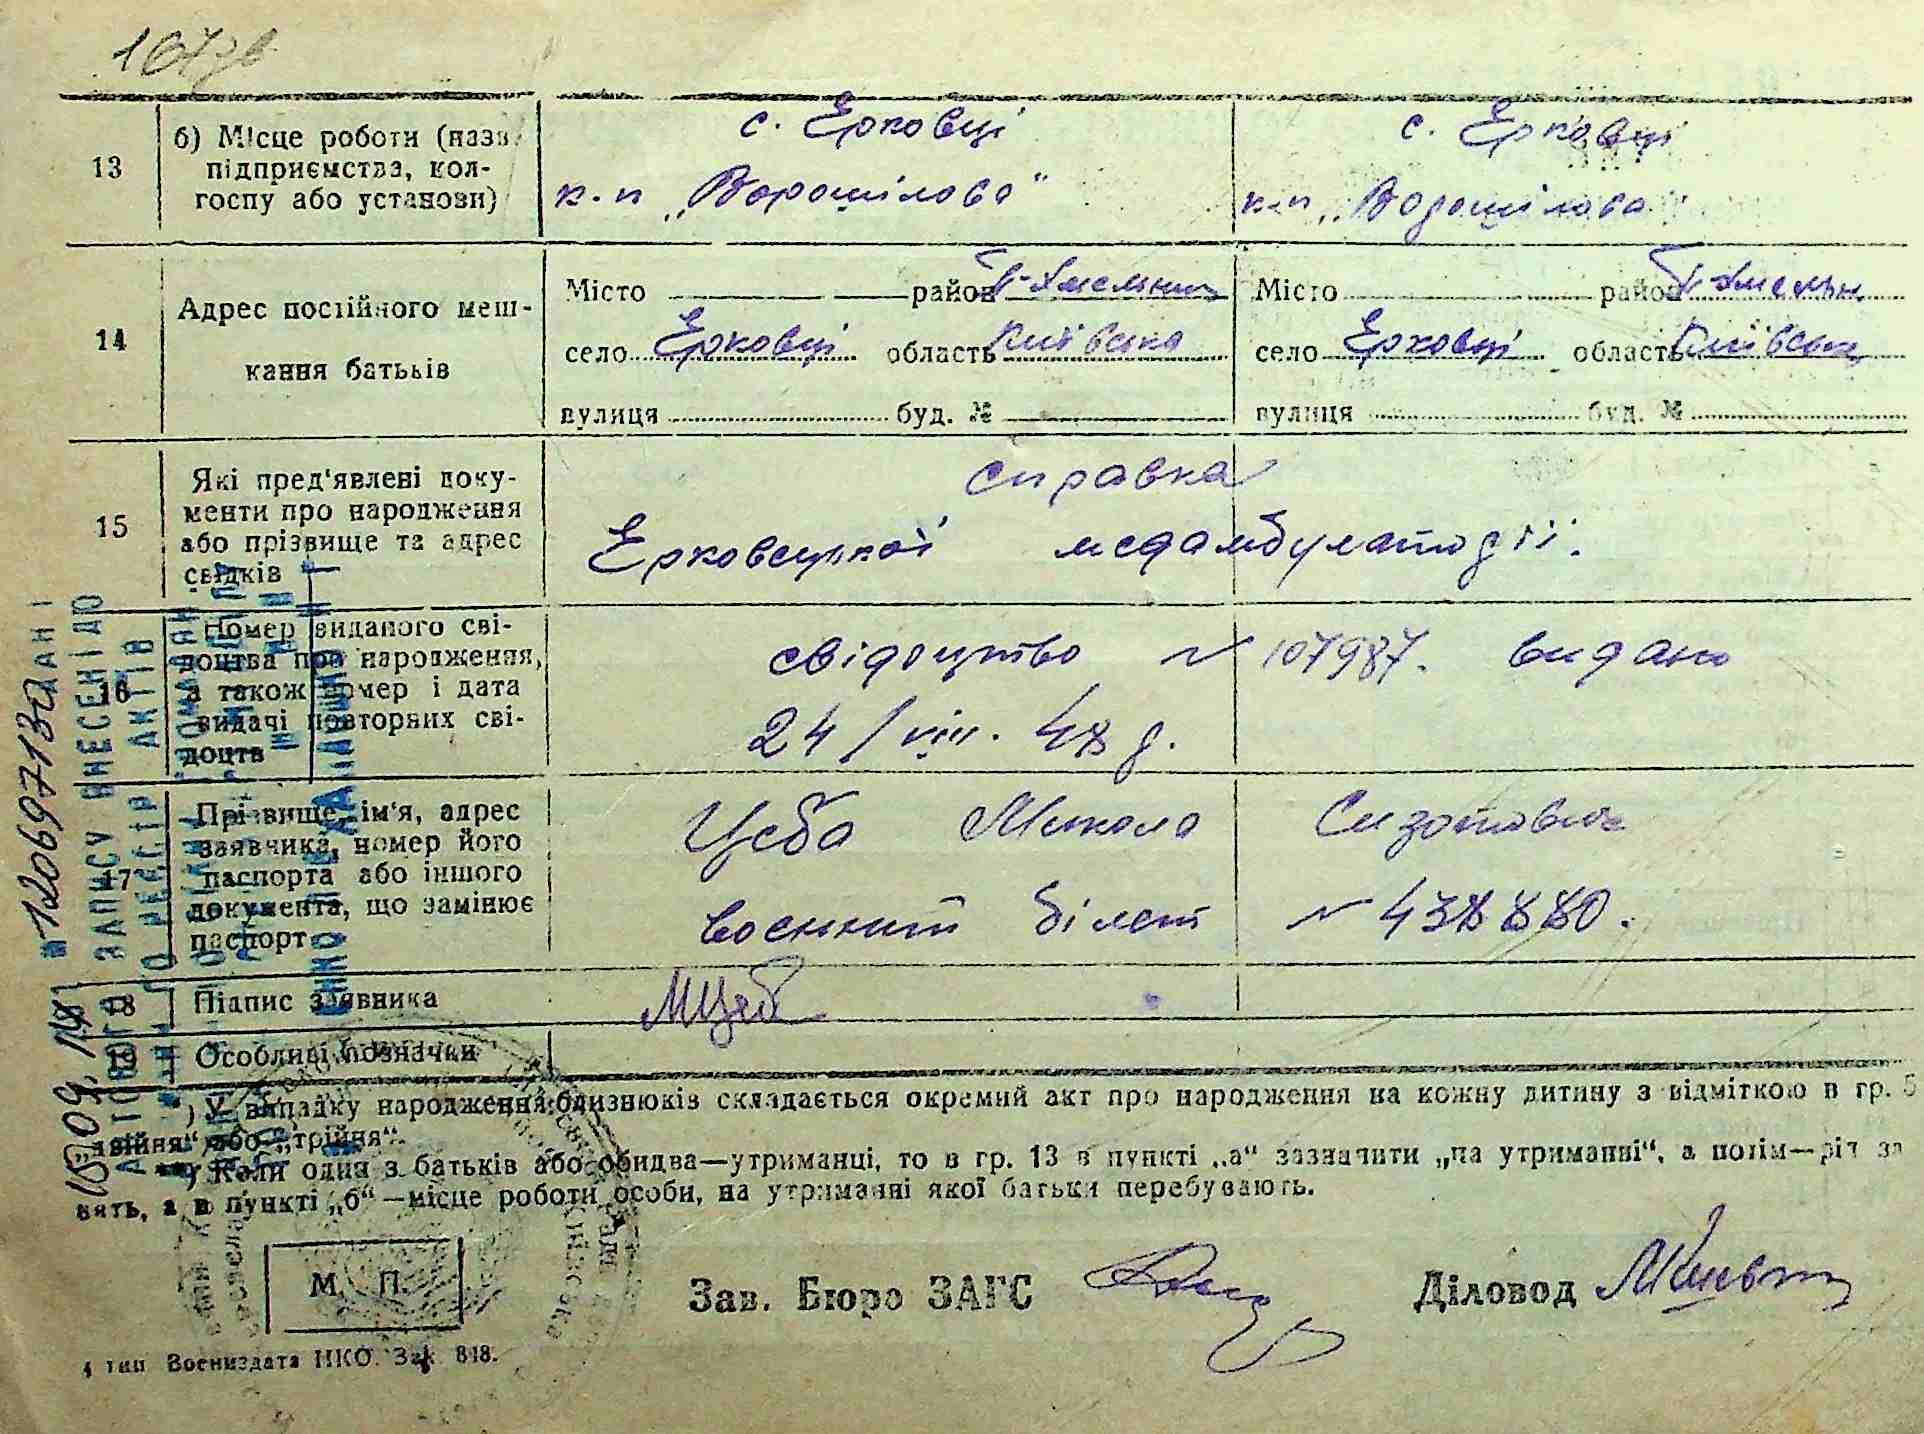 167зв
13
б) Місце роботи (назв
підприємства, кол-
госпу або установи)
с. Ерковці
к-п „Ворошілова“
с. Ерковці
к-п „Ворошілова
14
Адрес постійного меш-
кання батьків
Місто район П-Хмельниц
село Ерковці область Київська
вулиця буд. №
Місто район П-Хмельн.
село Ерковці область Київська
вулиця буд. №
15
Які пред'явлені доку-
менти про народження
або прізвище та адрес
свідків
Справка
Ерковецької медамбулаторії.
16
Номер виданого сві-
доцтва про народження,
а також номер і дата
видачі повторних сві-
доцтв
свідоцтво № 107987. видано
24/VIII. 48 р.
17
Прізвище, ім'я, адрес
заявника, номер його
паспорта або іншого
документа, що замінює
паспорт
Цеба Микола Сизотович
военний білет № 438880.
18
Підпис заявника
МЦеб
19
Особливі позначки
*) У випадку народження близнюків складається окремий акт про народження на кожну дитину з відміткою в гр. 5
„двійня“ або „трійня“.
**) Коли один з батьків або обидва—утриманці, то в гр. 13 в пункті „а“ зазначити „на утриманні“, а потім—рід за
нять, а в пункті „б“—місце роботи особи, на утриманні якої батьки перебувають.
М. П.
Зав. Бюро ЗАГС
Діловод
4 тип Воениздата НКО. Зак. 848.
ДАНІ
АКТОВОГО ЗАПИСУ ВНЕСЕНІ ДО
АКТІВ
№ 12069713